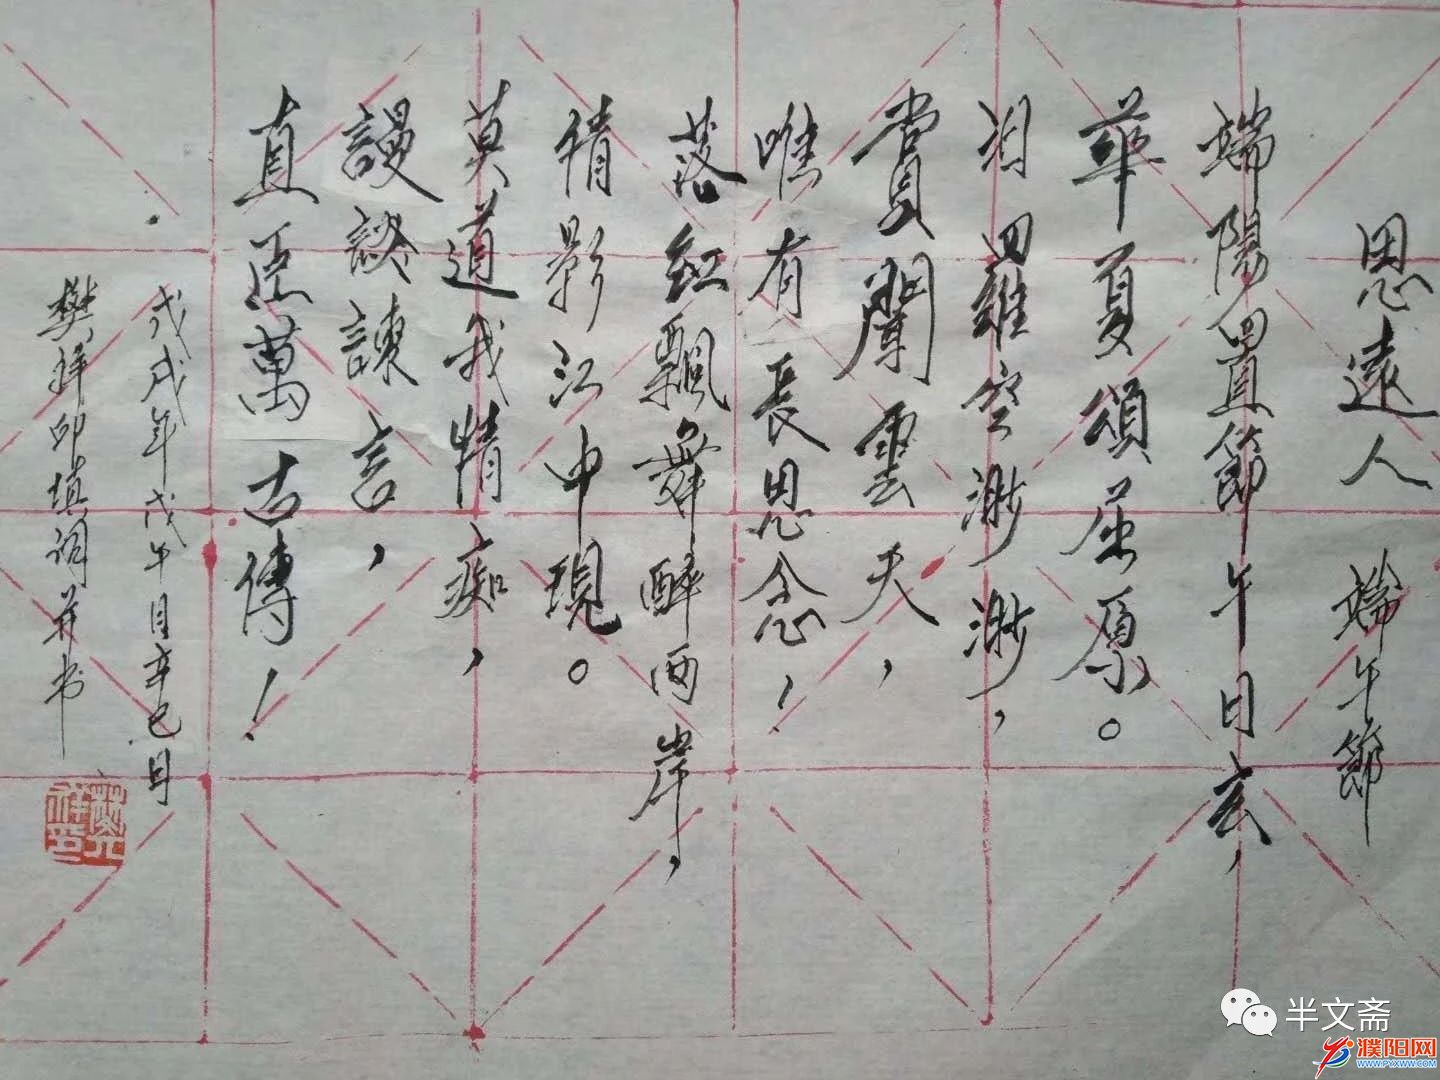 思遠人 端午節
端陽置節午日玄,
華夏頌屈原。
汨羅空渺渺,
賞聞雲天,
唯有長思念!
落紅飄舞醉两岸,
倩影江中現。
莫道我情痴,
謾談諫言,
直臣萬古傳!
戊戌年戊午月辛巳日
樊祥印填词并书
半文斋
濮阳网
WWW.PYXWW.COM